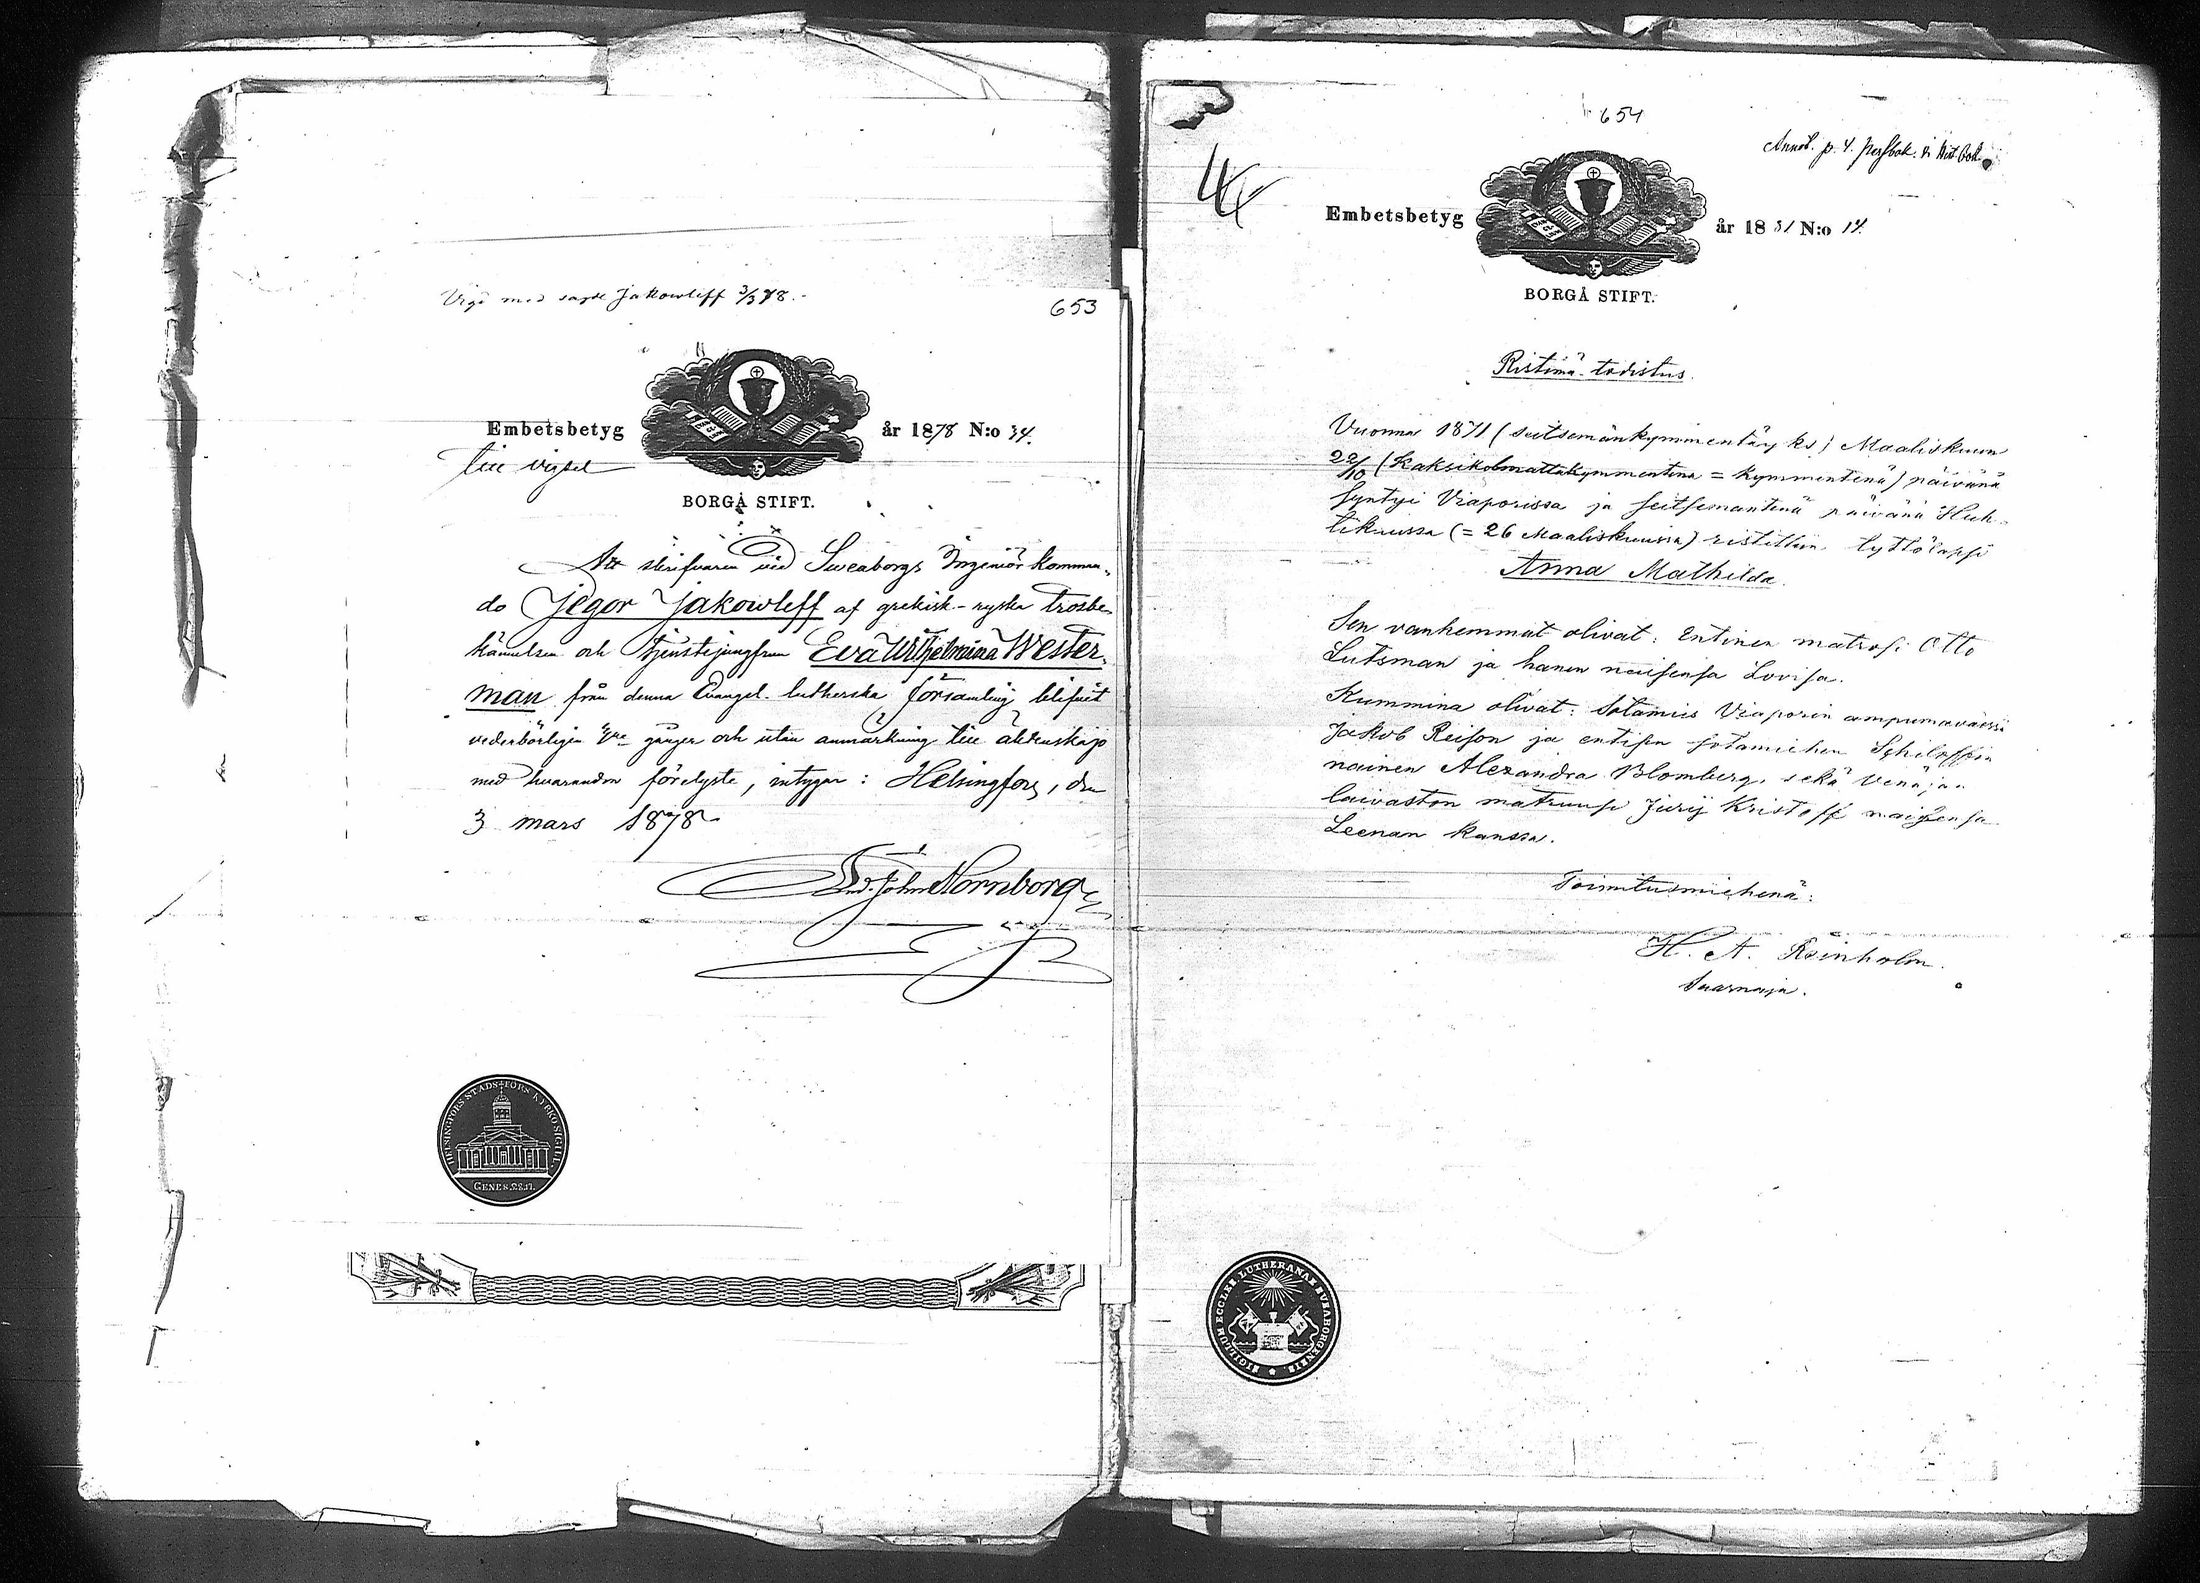 Vigd med sagde Jakowleff 3/3 78.
653
Embetsbetyg år 1878 N:o 34.
till vigsel
BORGÅ STIFT.
Att skrifvaren vid Sveaborgs Ingeniör komman-
do Jegor Jakowleff af grekisk-ryska trosbe-
kännelsen och tjenstejungfrun Eva Wilhelmina Wester-
man från denna Evangel. lutherska församling blifvit
vederbörligen 3ne gånger och utan anmärkning till äktenskap
med hvarandra förelyste, intygar: Helsingfors, den
3 mars 1878
John Hornborg
HELSINGFORS STADS KYRKO SIGILL.
GENES. 28.17.
654
Embetsbetyg år 1881 N:o 14.
BORGÅ STIFT.
Ristimä-todistus.
Vuonna 1871 (seitsemänkymmentäy ks) Maaliskuun
22/10 (Kaksikolmattakymmentenä = kymmentenä) päivänä
syntyi Viaporissa ja seitsemäntenä päivänä Huh-
tikuussa (= 26 Maaliskuussa) ristittiin tyttölapsi
Anna Mathilda.
Sen vanhemmat olivat: Entinen matrosi Otto
Lutsman ja hänen vaimonsa Lovisa.
Kummina olivat: Sotamies Viaporin ampumaväessä
Jakob Reison ja entisen sotamiehen Schiloffin
nainen Alexandra Blomberg, sekä Venäjän
laivaston matruusi Jurij Kristoff naisensa
Leenan kanssa.
Toimitusmiehenä:
H. A. Reinholm.
Saarnaja.
SIGILLUM ECCLES. LUTHERANAE SVEABORGENSIS